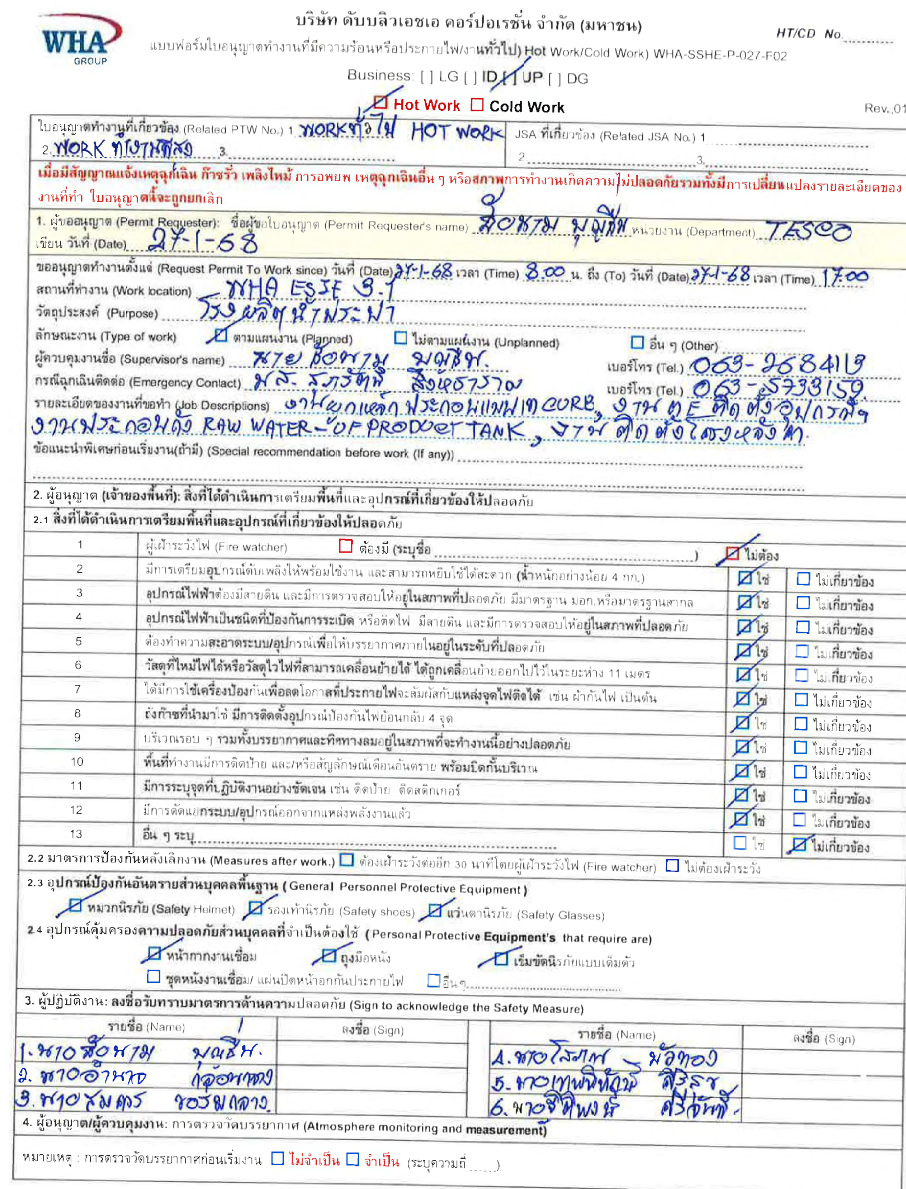 WHA
GROUP
บริษัท ดับบลิวเอชเอ คอร์ปอเรชั่น จำกัด (มหาชน)
HT/CD No.
แบบฟอร์มใบอนุญาตทำงานที่มีความร้อนหรือประกายไฟ/งานทั่วไป) Hot Work/Cold Work) WHA-SSHE-P-027-F02
Business: [ ] LG [ ] ID [/] UP [ ] DG
☑ Hot Work ☐ Cold Work
Rev.,01
ใบอนุญาตทำงานที่เกี่ยวข้อง (Related PTW No.) 1. WORK ทั่วไป HOT WORK
JSA ที่เกี่ยวข้อง (Related JSA No.) 1
2. WORK ทำงานที่สูง 3.
2 3.
เมื่อมีสัญญาณแจ้งเหตุฉุกเฉิน ก๊าซรั่ว เพลิงไหม้ การอพยพ เหตุฉุกเฉินอื่น ๆ หรือสภาพการทำงานเกิดความไม่ปลอดภัยรวมทั้งมีการเปลี่ยนแปลงรายละเอียดของ
งานที่ทำ ใบอนุญาตนี้จะถูกยกเลิก
1. ผู้ขออนุญาต (Permit Requester): ชื่อผู้ขอใบอนุญาต (Permit Requester's name) บุญชื่น หน่วยงาน (Department) TESCO
เขียน วันที่ (Date) 27-1-68
ขออนุญาตทำงานตั้งแต่ (Request Permit To Work since) วันที่ (Date) 27-1-68 เวลา (Time) 8.00 น. ถึง (To) วันที่ (Date) 27-1-68 เวลา (Time) 17.00
สถานที่ทำงาน (Work location) WHA ESIE 3.1
วัตถุประสงค์ (Purpose) โรงผลิตน้ำประปา
ลักษณะงาน (Type of work) ☑ ตามแผนงาน (Planned) ☐ ไม่ตามแผนงาน (Unplanned) ☐ อื่น ๆ (Other)
ผู้ควบคุมงานชื่อ (Supervisor's name) นาย บุญชื่น. เบอร์โทร (Tel.) 063-2684113
กรณีฉุกเฉินติดต่อ (Emergency Contact) น.ส. เบอร์โทร (Tel.) 063-5733159
รายละเอียดของงานที่ขอทำ (Job Descriptions) งานผูกเหล็ก ประกอบแบบ เท CURB, งาน EE ติดตั้งอุปกรณ์ฯ
งานประกอบถัง RAW WATER-UF PRODUCT TANK, งานติดตั้งโครงหลังคา.
ข้อแนะนำพิเศษก่อนเริ่มงาน(ถ้ามี) (Special recommendation before work (If any))
2. ผู้อนุญาต (เจ้าของพื้นที่): สิ่งที่ได้ดำเนินการเตรียมพื้นที่และอุปกรณ์ที่เกี่ยวข้องให้ปลอดภัย
2.1 สิ่งที่ได้ดำเนินการเตรียมพื้นที่และอุปกรณ์ที่เกี่ยวข้องให้ปลอดภัย
1 ผู้เฝ้าระวังไฟ (Fire watcher) ☐ ต้องมี (ระบุชื่อ ) ☑ ไม่ต้อง
2 มีการเตรียมอุปกรณ์ดับเพลิงให้พร้อมใช้งาน และสามารถหยิบใช้ได้สะดวก (น้ำหนักอย่างน้อย 4 กก.) ☑ ใช่ ☐ ไม่เกี่ยวข้อง
3 อุปกรณ์ไฟฟ้าต้องมีสายดิน และมีการตรวจสอบให้อยู่ในสภาพที่ปลอดภัย มีมาตรฐาน มอก.หรือมาตรฐานสากล ☑ ใช่ ☐ ไม่เกี่ยวข้อง
4 อุปกรณ์ไฟฟ้าเป็นชนิดที่ป้องกันการระเบิด หรือติดไฟ มีสายดิน และมีการตรวจสอบให้อยู่ในสภาพที่ปลอดภัย ☑ ใช่ ☐ ไม่เกี่ยวข้อง
5 ต้องทำความสะอาดระบบ/อุปกรณ์เพื่อให้บรรยากาศภายในอยู่ในระดับที่ปลอดภัย ☑ ใช่ ☐ ไม่เกี่ยวข้อง
6 วัสดุที่ไหม้ไฟได้หรือวัสดุไวไฟที่สามารถเคลื่อนย้ายได้ ได้ถูกเคลื่อนย้ายออกไปไว้ในระยะห่าง 11 เมตร ☑ ใช่ ☐ ไม่เกี่ยวข้อง
7 ได้มีการใช้เครื่องป้องกันเพื่อลดโอกาสที่ประกายไฟจะสัมผัสกับแหล่งจุดไฟติดได้ เช่น ผ้ากันไฟ เป็นต้น ☑ ใช่ ☐ ไม่เกี่ยวข้อง
8 ถังก๊าซที่นำมาใช้ มีการติดตั้งอุปกรณ์ป้องกันไฟย้อนกลับ 4 จุด ☑ ใช่ ☐ ไม่เกี่ยวข้อง
9 บริเวณรอบ ๆ รวมทั้งบรรยากาศและทิศทางลมอยู่ในสภาพที่จะทำงานนี้อย่างปลอดภัย ☑ ใช่ ☐ ไม่เกี่ยวข้อง
10 พื้นที่ทำงานมีการติดป้าย และ/หรือสัญลักษณ์เตือนอันตราย พร้อมปิดกั้นบริเวณ ☑ ใช่ ☐ ไม่เกี่ยวข้อง
11 มีการระบุจุดที่ปฏิบัติงานอย่างชัดเจน เช่น ติดป้าย ติดสติกเกอร์ ☑ ใช่ ☐ ไม่เกี่ยวข้อง
12 มีการตัดแยกระบบ/อุปกรณ์ออกจากแหล่งพลังงานแล้ว ☑ ใช่ ☐ ไม่เกี่ยวข้อง
13 อื่น ๆ ระบุ ☐ ใช่ ☑ ไม่เกี่ยวข้อง
2.2 มาตรการป้องกันหลังเลิกงาน (Measures after work.) ☐ ต้องเฝ้าระวังต่ออีก 30 นาทีโดยผู้เฝ้าระวังไฟ (Fire watcher) ☐ ไม่ต้องเฝ้าระวัง
2.3 อุปกรณ์ป้องกันอันตรายส่วนบุคคลพื้นฐาน (General Personnel Protective Equipment)
☑ หมวกนิรภัย (Safety Helmet) ☑ รองเท้านิรภัย (Safety shoes) ☑ แว่นตานิรภัย (Safety Glasses)
2.4 อุปกรณ์คุ้มครองความปลอดภัยส่วนบุคคลที่จำเป็นต้องใช้ (Personal Protective Equipment's that require are)
☑ หน้ากากงานเชื่อม ☑ ถุงมือหนัง ☑ เข็มขัดนิรภัยแบบเต็มตัว
☐ ชุดหนังงานเชื่อม/ แผ่นปิดหน้าอกกันประกายไฟ ☐ อื่นๆ
3. ผู้ปฏิบัติงาน: ลงชื่อรับทราบมาตรการด้านความปลอดภัย (Sign to acknowledge the Safety Measure)
รายชื่อ (Name) ลงชื่อ (Sign) รายชื่อ (Name) ลงชื่อ (Sign)
1. นาย บุญชื่น. 4. นายโสภณ บัวทอง
2. นายอำนาจ 5. นายเทพพิทักษ์ ศิริสุข
3. นายสมควร 6. นายธิติพงษ์ ศรีจันทร์
4. ผู้อนุญาต/ผู้ควบคุมงาน: การตรวจวัดบรรยากาศ (Atmosphere monitoring and measurement)
หมายเหตุ : การตรวจวัดบรรยากาศก่อนเริ่มงาน ☐ ไม่จำเป็น ☐ จำเป็น (ระบุความถี่ )